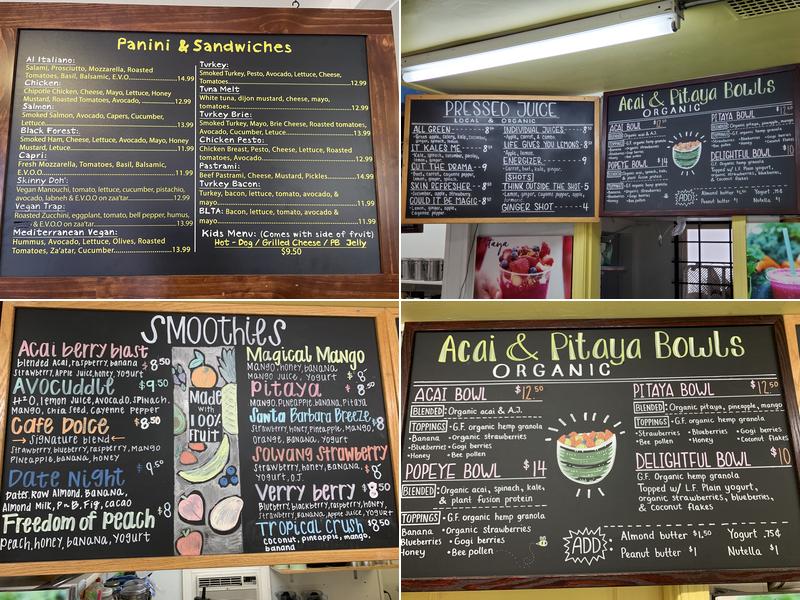 Panini & Sandwiches
Al Italiano:
Salami, Prosciutto, Mozzarella, Roasted
Tomatoes, Basil, Balsamic, E.V.O.....14.99
Chicken:
Chipotle Chicken, Cheese, Mayo, Lettuce, Honey
Mustard, Roasted Tomatoes, Avocado,.....12.99
Salmon:
Smoked Salmon, Avocado, Capers, Cucumber,
Lettuce.....13.99
Black Forest:
Smoked Ham, Cheese, Lettuce, Avocado, Mayo, Honey
Mustard, Lettuce.....11.99
Capri:
Fresh Mozzarella, Tomatoes, Basil, Balsamic,
E.V.O.O.....11.99
Skinny Doh':
Vegan Manouchi, tomato, lettuce, cucumber, pistachio,
avocado, labneh & E.V.O.O on zaa'tar.....12.99
Vegan Trap:
Roasted Zucchini, eggplant, tomato, bell pepper, humus,
& E.V.O.O on zaa'tar.....13.99
Mediterranean Vegan:
Hummus, Avocado, Lettuce, Olives, Roasted
Tomatoes, Za'atar, Cucumber.....13.99
Turkey:
Smoked Turkey, Pesto, Avocado, Lettuce, Cheese,
Tomatoes.....12.99
Tuna Melt
White tuna, dijon mustard, cheese, mayo,
tomatoes.....12.99
Turkey Brie:
Smoked Turkey, Mayo, Brie Cheese, Roasted tomatoes,
Avocado, Cucumber, Letuce.....13.99
Chicken Pesto:
Chicken Breast, Pesto, Cheese, Lettuce, Roasted
tomatoes, Avocado.....12.99
Pastrami:
Beef Pastrami, Cheese, Mustard, Pickles.....14.99
Turkey Bacon:
Turkey, bacon, lettuce, tomato, avocado, &
mayo.....11.99
BLTA: Bacon, lettuce, tomato, avocado &
mayo.....11.99
Kids Menu: (Comes with side of fruit)
Hot - Dog / Grilled Cheese / PB Jelly
$9.50
PRESSED JUICE
LOCAL & ORGANIC
ALL GREEN
IT KALES ME
CUT THE DRAMA - 9
SKIN REFRESHER
COULD IT BE MAGIC
INDIVIDUAL JUICES
•Apple, carrot, & lemon
LIFE GIVES YOU LEMONS
•Apple, lemon
ENERGIZER - 9
•Carrot, beet, kale, ginger
SHOTS
THINK OUTSIDE THE SHOT - 5
GINGER SHOT - 4
Acai & Pitaya Bowls
ORGANIC
ACAI BOWL
PITAYA BOWL
POPEYE BOWL $14
DELIGHTFUL BOWL $10
ADD:
Almond butter
Peanut butter $1
Yogurt .75¢
Nutella $1
SMOOTHIES
Acai berry blast $8.50
blended Acai, raspberry, banana
Strawberry, Apple Juice, honey, Yogurt
AVOCUDDLE $9.50
H2O, lemon Juice, avocado, Spinach,
Mango, chia seed, Cayenne Pepper
Cafe Dolce $8.50
→ Signature blend ←
Strawberry, blueberry, raspberry, mango
Pineapple, banana, honey
Date Night 9.50
Dates, Raw Almond, Banana,
Almond Milk, P.B, Fig, cacao
Freedom of Peach $8
Peach, honey, banana, yogurt
Made
with
100%
Fruit
Magical Mango $8
Mango, honey, banana,
Mango Juice, Yogurt
Pitaya 8.50
Mango, Pineapple, banana, Pitaya
Santa Barbara Breeze $8
Strawberry, honey, Pineapple, Mango,
orange, Banana, Yogurt
Solvang Strawberry $8
Strawberry, honey, Banana,
Yogurt, O.J.
Verry berry $8.50
Blueberry, blackberry, raspberry, honey,
Strawberry, Banana, Apple Juice, Yogurt
Tropical Crush $8.50
Coconut, pineapple, mango,
banana
Acai & Pitaya Bowls
ORGANIC
ACAI BOWL $12.50
BLENDED: Organic acai & A.J.
TOPPINGS •G.F. organic hemp granola
•Banana •Organic strawberries
•Blueberries •Gogi berries
•Honey •Bee pollen
POPEYE BOWL $14
BLENDED: Organic acai, spinach, kale,
& plant fusion protein
TOPPINGS •G.F. organic hemp granola
Banana •Organic strawberries
Blueberries •Gogi berries
Honey •Bee pollen
PITAYA BOWL $12.50
BLENDED: Organic pitaya, pineapple, mango
TOPPINGS •G.F. organic hemp granola
•Strawberries •Blueberries •Gogi berries
•Banana •Honey •Coconut Flakes
DELIGHTFUL BOWL $10
G.F. Organic Hemp Granola
Topped w/ L.F. Plain yogurt,
organic strawberries, blueberries,
& Coconut flakes
ADD:
Almond butter $1.50 Yogurt .75¢
Peanut butter $1 Nutella $1